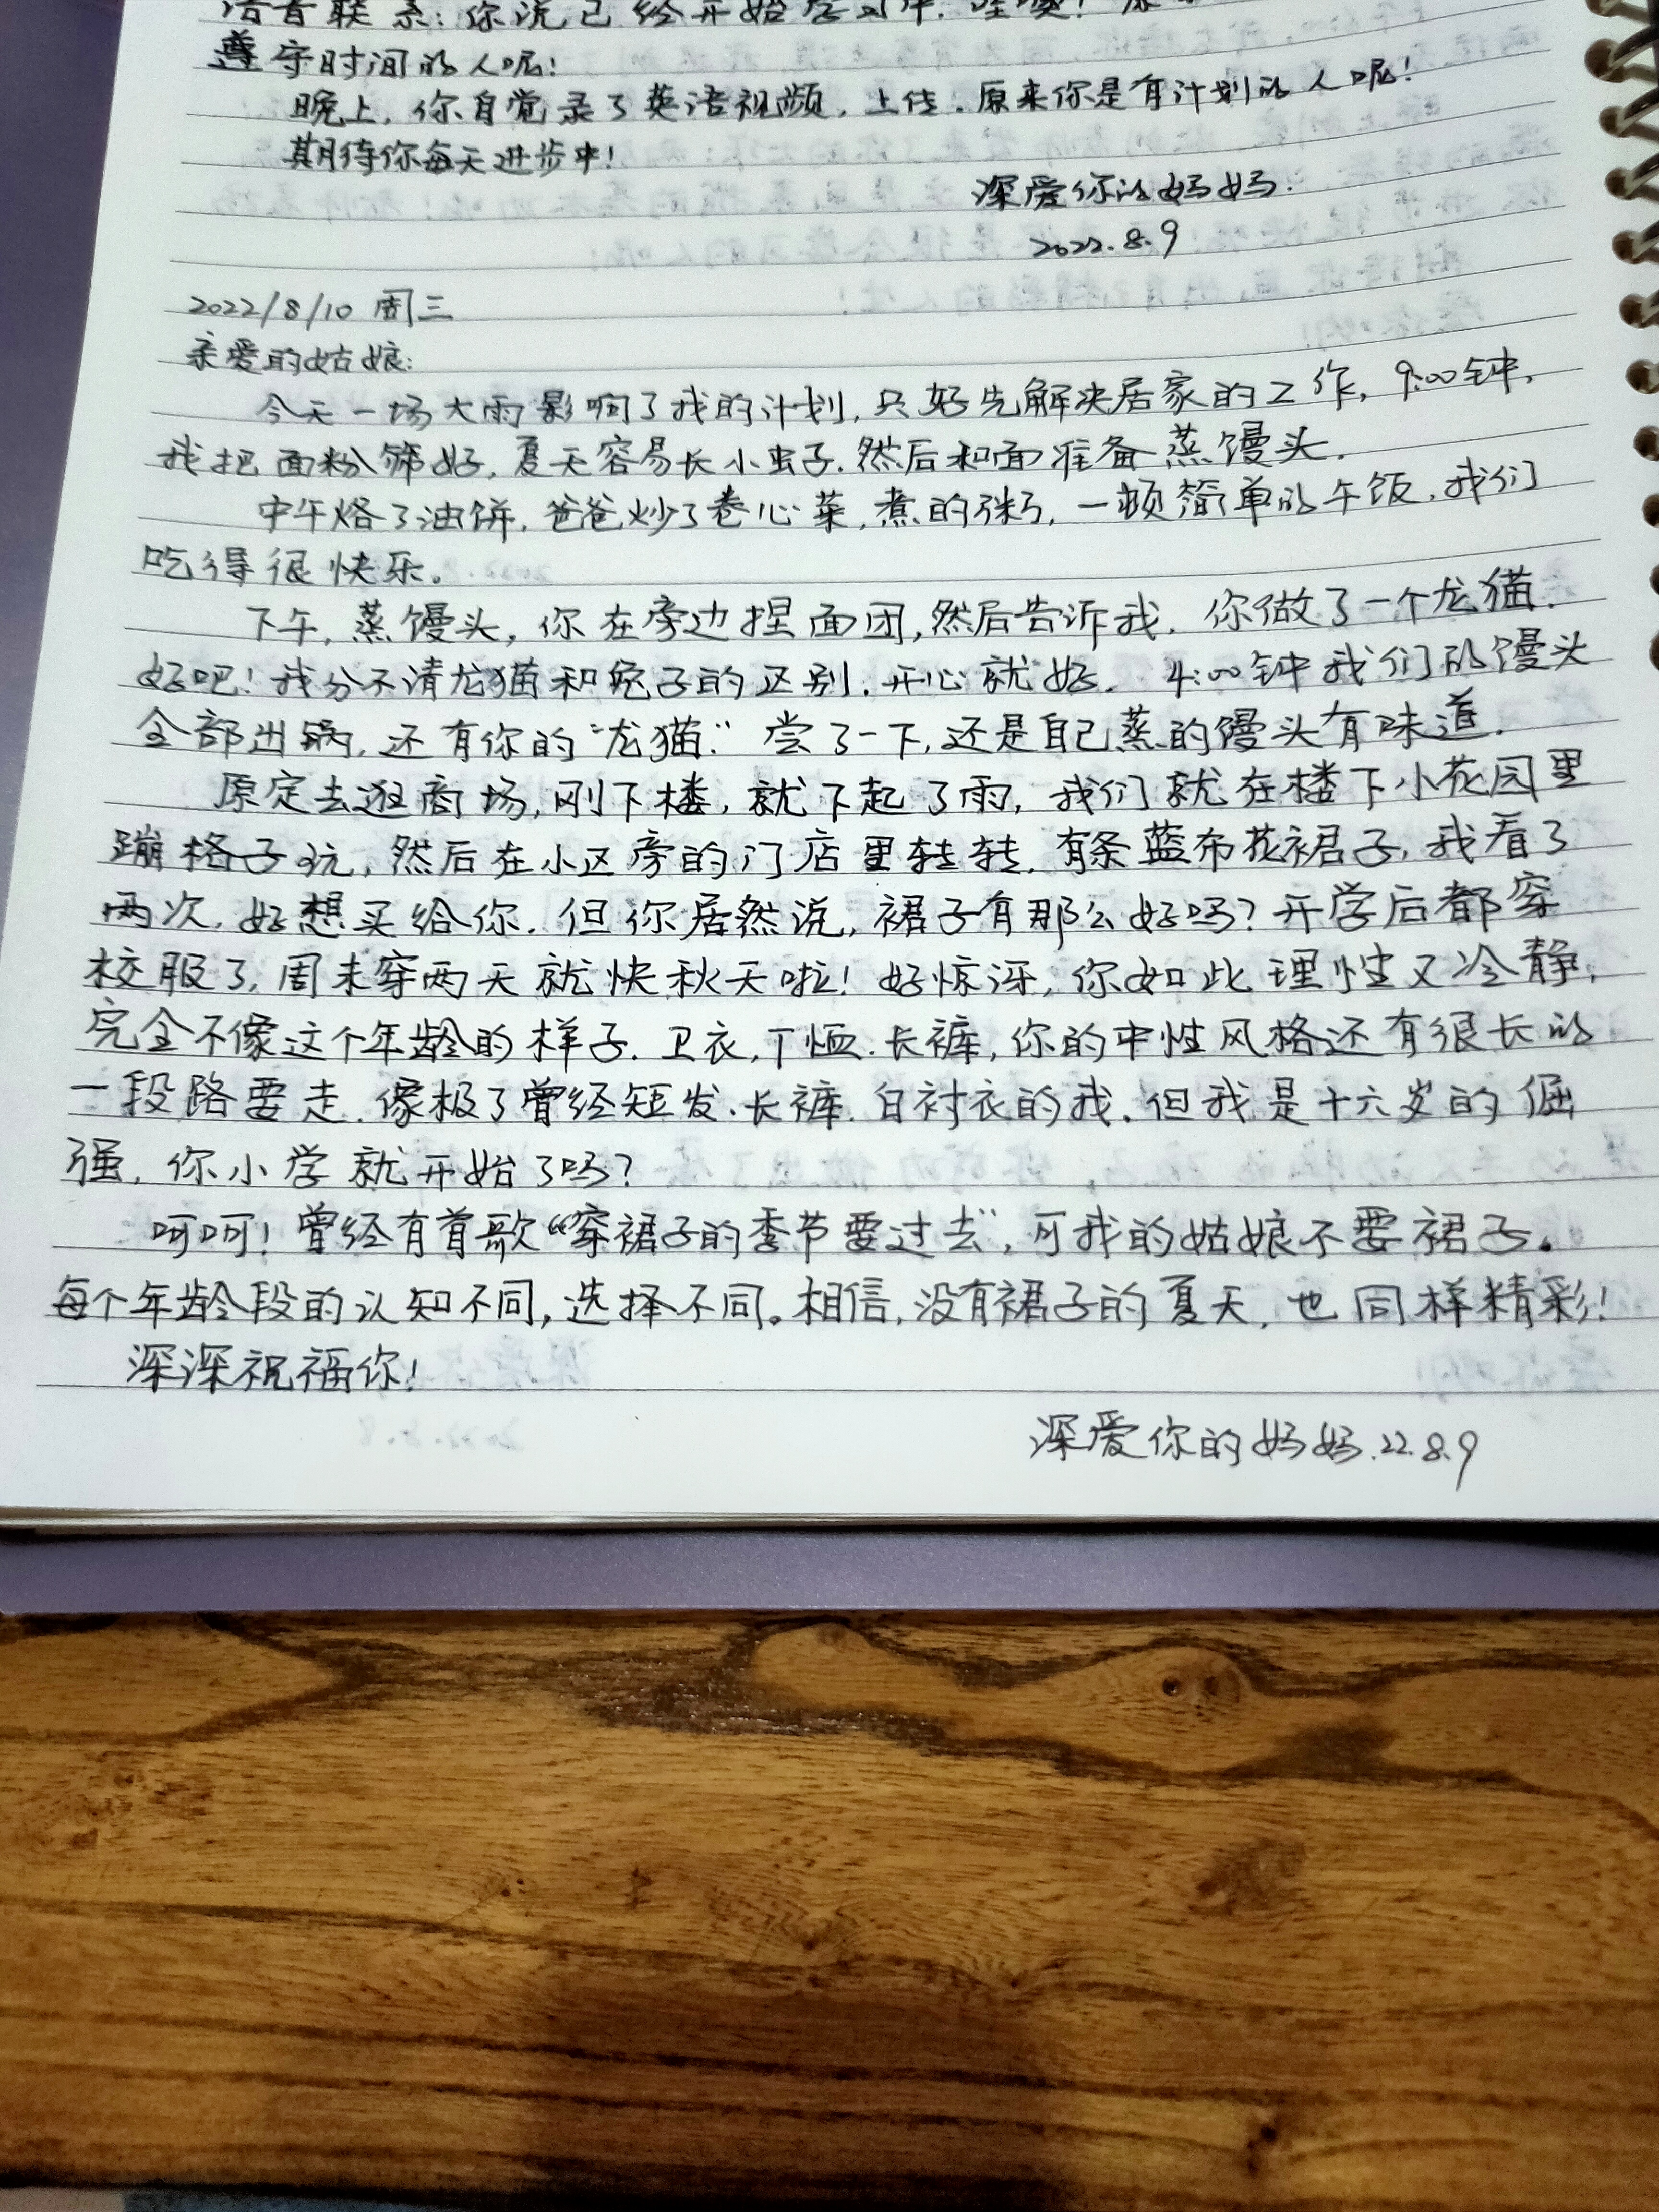 语音联系:你说已经开始学习中.哇噢!原
遵守时间的人呢!
晚上,你自觉录了英语视频,上传.原来你是有计划的人呢!
期待你每天进步中!
深爱你的妈妈.
2022.8.9
2022/8/10 周三
亲爱的姑娘:
今天一场大雨影响了我的计划,只好先解决居家的工作,9:00钟,
我把面粉筛好,夏天容易长小虫子.然后和面准备蒸馒头.
中午烙了油饼,爸爸炒了卷心菜,煮的粥,一顿简单的午饭,我们
吃得很快乐。
下午,蒸馒头,你在旁边捏面团,然后告诉我.你做了一个龙猫.
好吧!我分不清龙猫和兔子的区别.开心就好. 4:00钟我们的馒头
全部出锅,还有你的“龙猫.”尝了一下,还是自己蒸的馒头有味道.
原定去逛商场,刚下楼,就下起了雨,我们就在楼下小花园里
蹦格子玩,然后在小区旁的门店里转转.有条蓝布花裙子,我看了
两次,好想买给你.但你居然说,裙子有那么好吗?开学后都穿
校服了,周末穿两天就快秋天啦!好惊讶,你如此理性又冷静,
完全不像这个年龄的样子.卫衣,T恤.长裤,你的中性风格还有很长的
一段路要走.像极了曾经短发.长裤.白衬衣的我.但我是十六岁的倔
强,你小学就开始了吗?
呵呵!曾经有首歌“穿裙子的季节要过去”,可我的姑娘不要裙子。
每个年龄段的认知不同,选择不同。相信,没有裙子的夏天,也同样精彩!
深深祝福你!
深爱你的妈妈.22.8.9